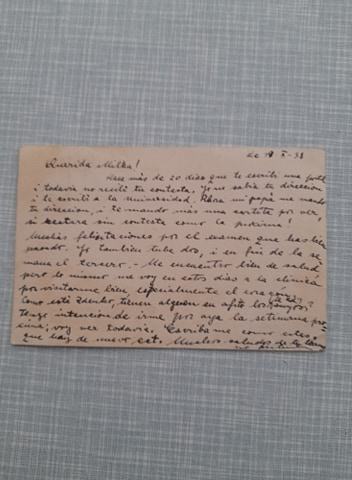 de X-38
Querida Milka!
Hace más de 20 dias que te escribi una
i todavia no recibi tu contesta. Yo no sabia tu direccion
i te escribi a la Universidad. Para mi papá me mando
tu direccion, i te mando más una cartita por ver,
si sin contesta como la próxima!
Muchas felicitaciones por el examen que has bien
pasado. Yo tambien tube dos, i en fin de la se
mana el tersero. - Me encuentro bien de salud
pero lo mismo me voy en estos dias a la clinica
por vizitarme bien, especialmente el corazón.
Como está Zdenko, tienes alguen en
Tengo intencion de irme por aya la settimana pro
xima; voy ver todavia. Escribame como estas,
que hay de nuevo, ect. Muchos saludos de